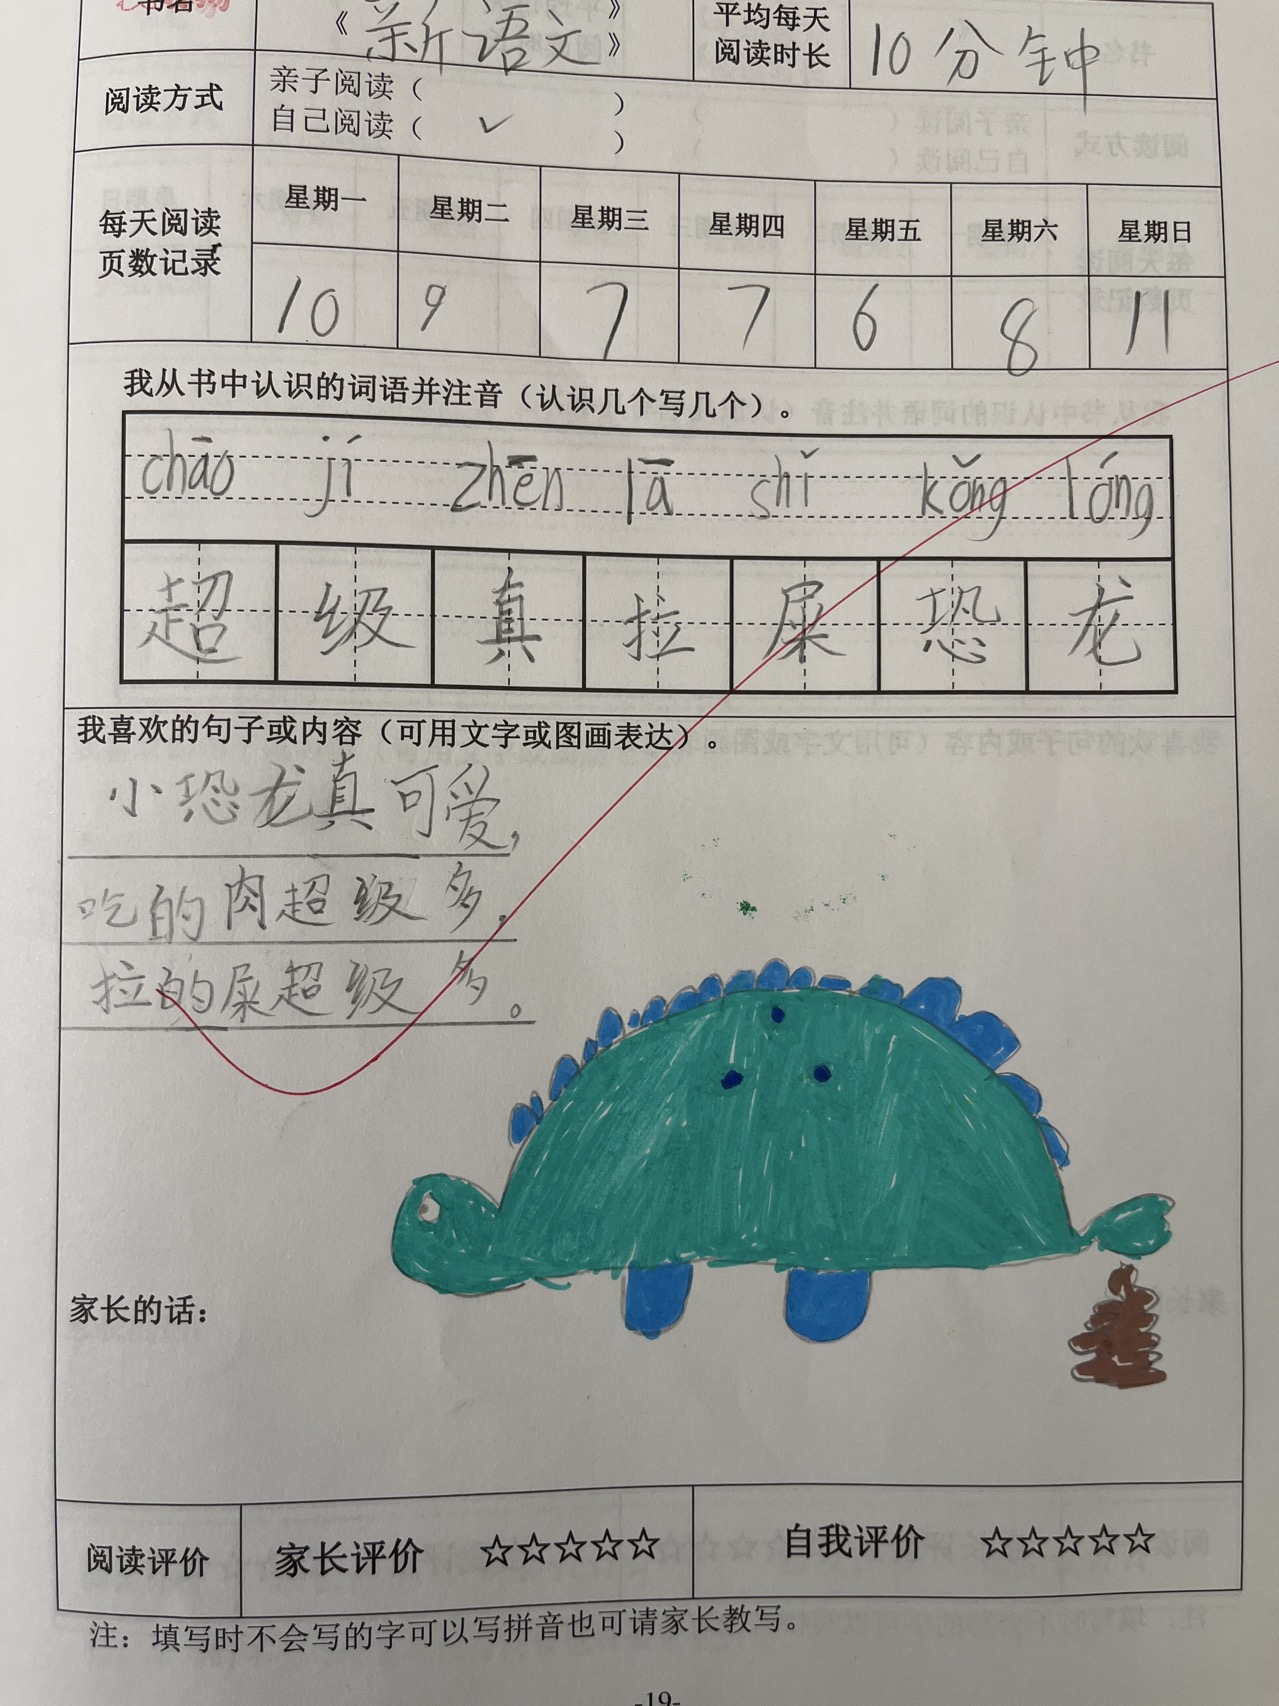 书名
《新语文》
平均每天
阅读时长
10分钟
阅读方式
亲子阅读（ ）
自己阅读（ ✓ ）
每天阅读
页数记录
星期一 星期二 星期三 星期四 星期五 星期六 星期日
10 9 7 7 6 8 11
我从书中认识的词语并注音（认识几个写几个）。
chāo jí zhēn lā shǐ kǒng lóng
超 级 真 拉 屎 恐 龙
我喜欢的句子或内容（可用文字或图画表达）。
小恐龙真可爱，
吃的肉超级多，
拉的屎超级多。
家长的话：
阅读评价 家长评价 ☆☆☆☆☆ 自我评价 ☆☆☆☆☆
注：填写时不会写的字可以写拼音也可请家长教写。
-19-